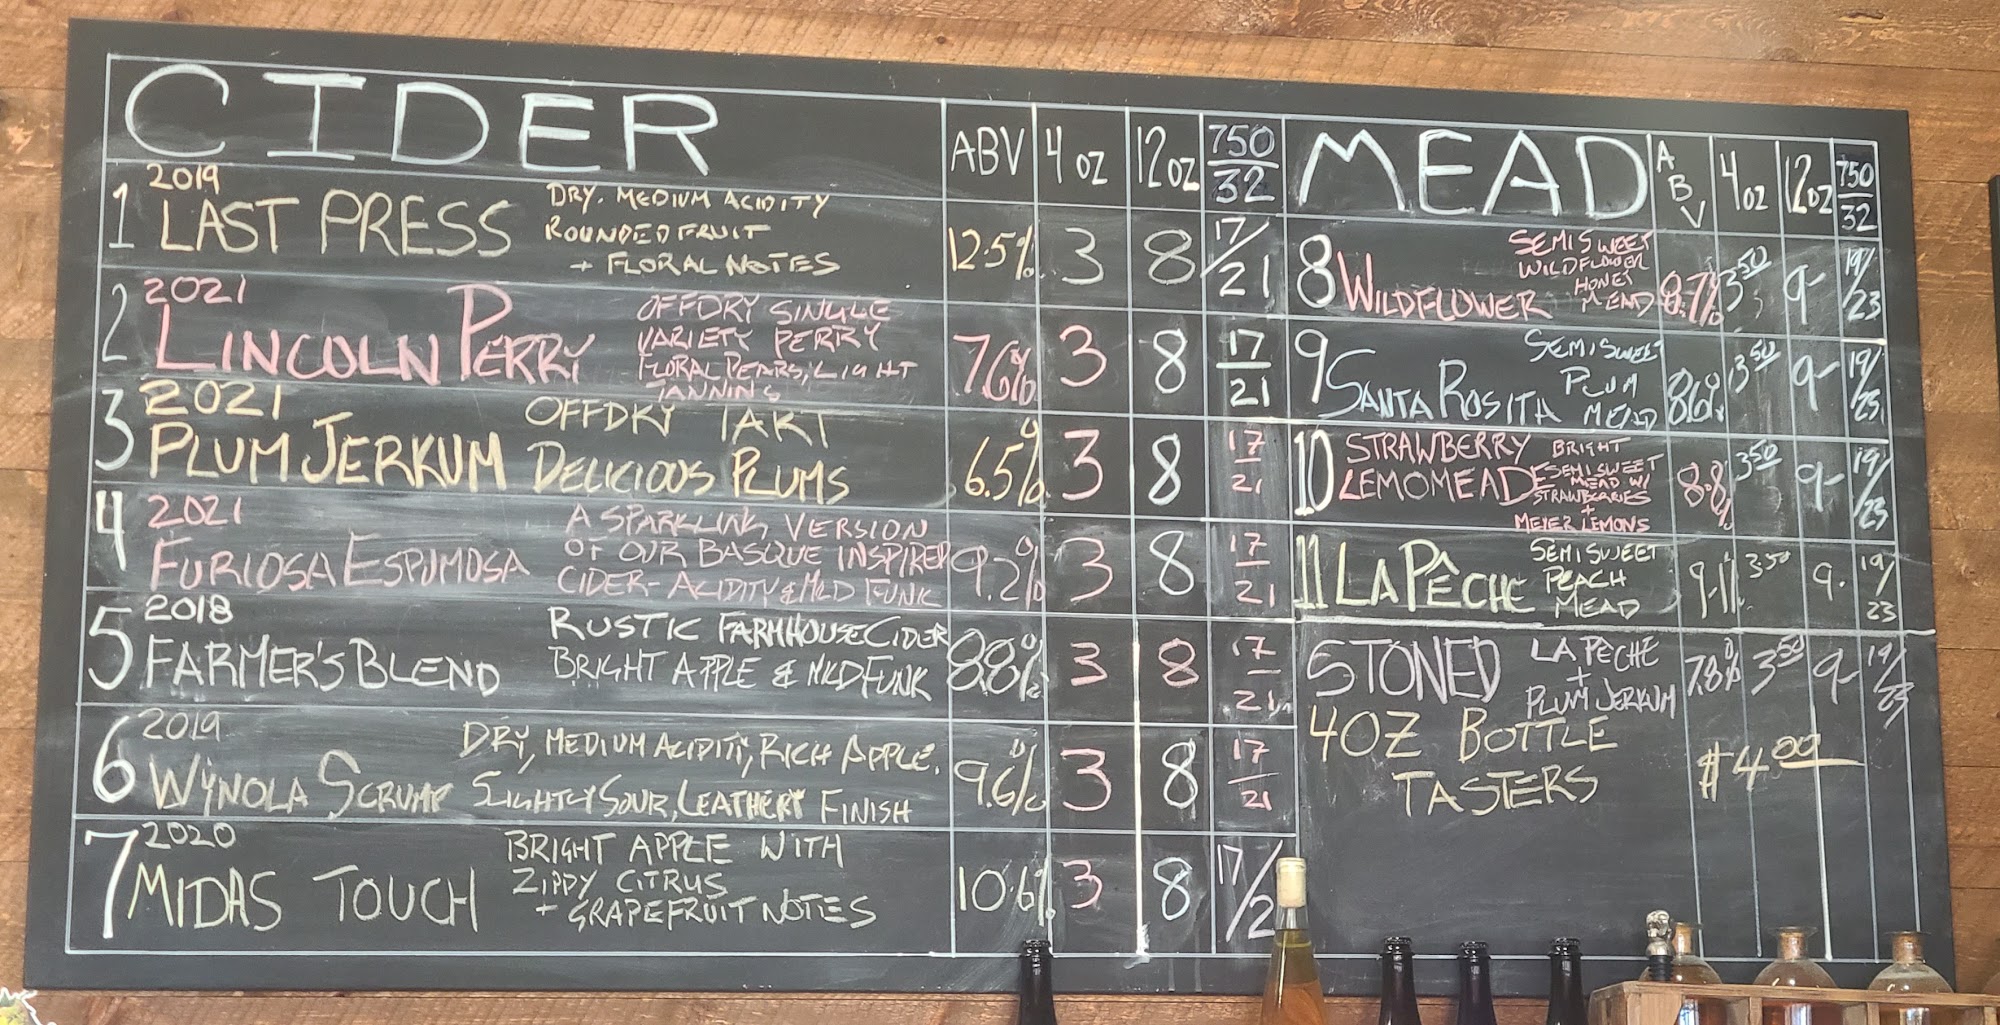 CIDER ABV 4 oz 12 oz 750/32
1 2019 LAST PRESS DRY. MEDIUM ACIDITY
ROUNDED FRUIT
+ FLORAL NOTES 12.5% 3 8 17/21
2 2021 LINCOLN PERRY OFFDRY SINGLE
VARIETY PERRY
FLORAL PEARS, LIGHT
TANNINS 7.6% 3 8 17/21
3 2021 PLUM JERKUM OFFDRY TART
DELICIOUS PLUMS 6.5% 3 8 17/21
4 2021 FURIOSA ESPUMOSA A SPARKLING VERSION
OF OUR BASQUE INSPIRED
CIDER- ACIDITY & MILD FUNK 9.2% 3 8 17/21
5 2018 FARMER'S BLEND RUSTIC FARMHOUSE CIDER
BRIGHT APPLE & MILD FUNK 8.8% 3 8 17/21
6 2019 WYNOLA SCRUMP DRY, MEDIUM ACIDITY, RICH APPLE.
SLIGHTLY SOUR, LEATHERY FINISH 9.6% 3 8 17/21
7 2020 MIDAS TOUCH BRIGHT APPLE WITH
ZIPPY CITRUS
+ GRAPEFRUIT NOTES 10.6% 3 8 17/2
MEAD ABV 4 oz 12 oz 750/32
8 WILDFLOWER SEMISWEET
WILDFLOWER
HONEY
MEAD 8.7% 3.50 9- 19/23
9 SANTA ROSITA SEMISWEET
PLUM
MEAD 8.6% 3.50 9- 19/23
10 STRAWBERRY
LEMOMEADE BRIGHT
SEMISWEET
MEAD W/
STRAWBERRIES
+
MEYER LEMONS 8.8% 3.50 9- 19/23
11 LA PÊCHE SEMISWEET
PEACH
MEAD 9.1% 3.50 9- 19/23
STONED LA PÊCHE
+
PLUM JERKUM 7.8% 3.50 9- 19/23
4OZ BOTTLE
TASTERS $4.00